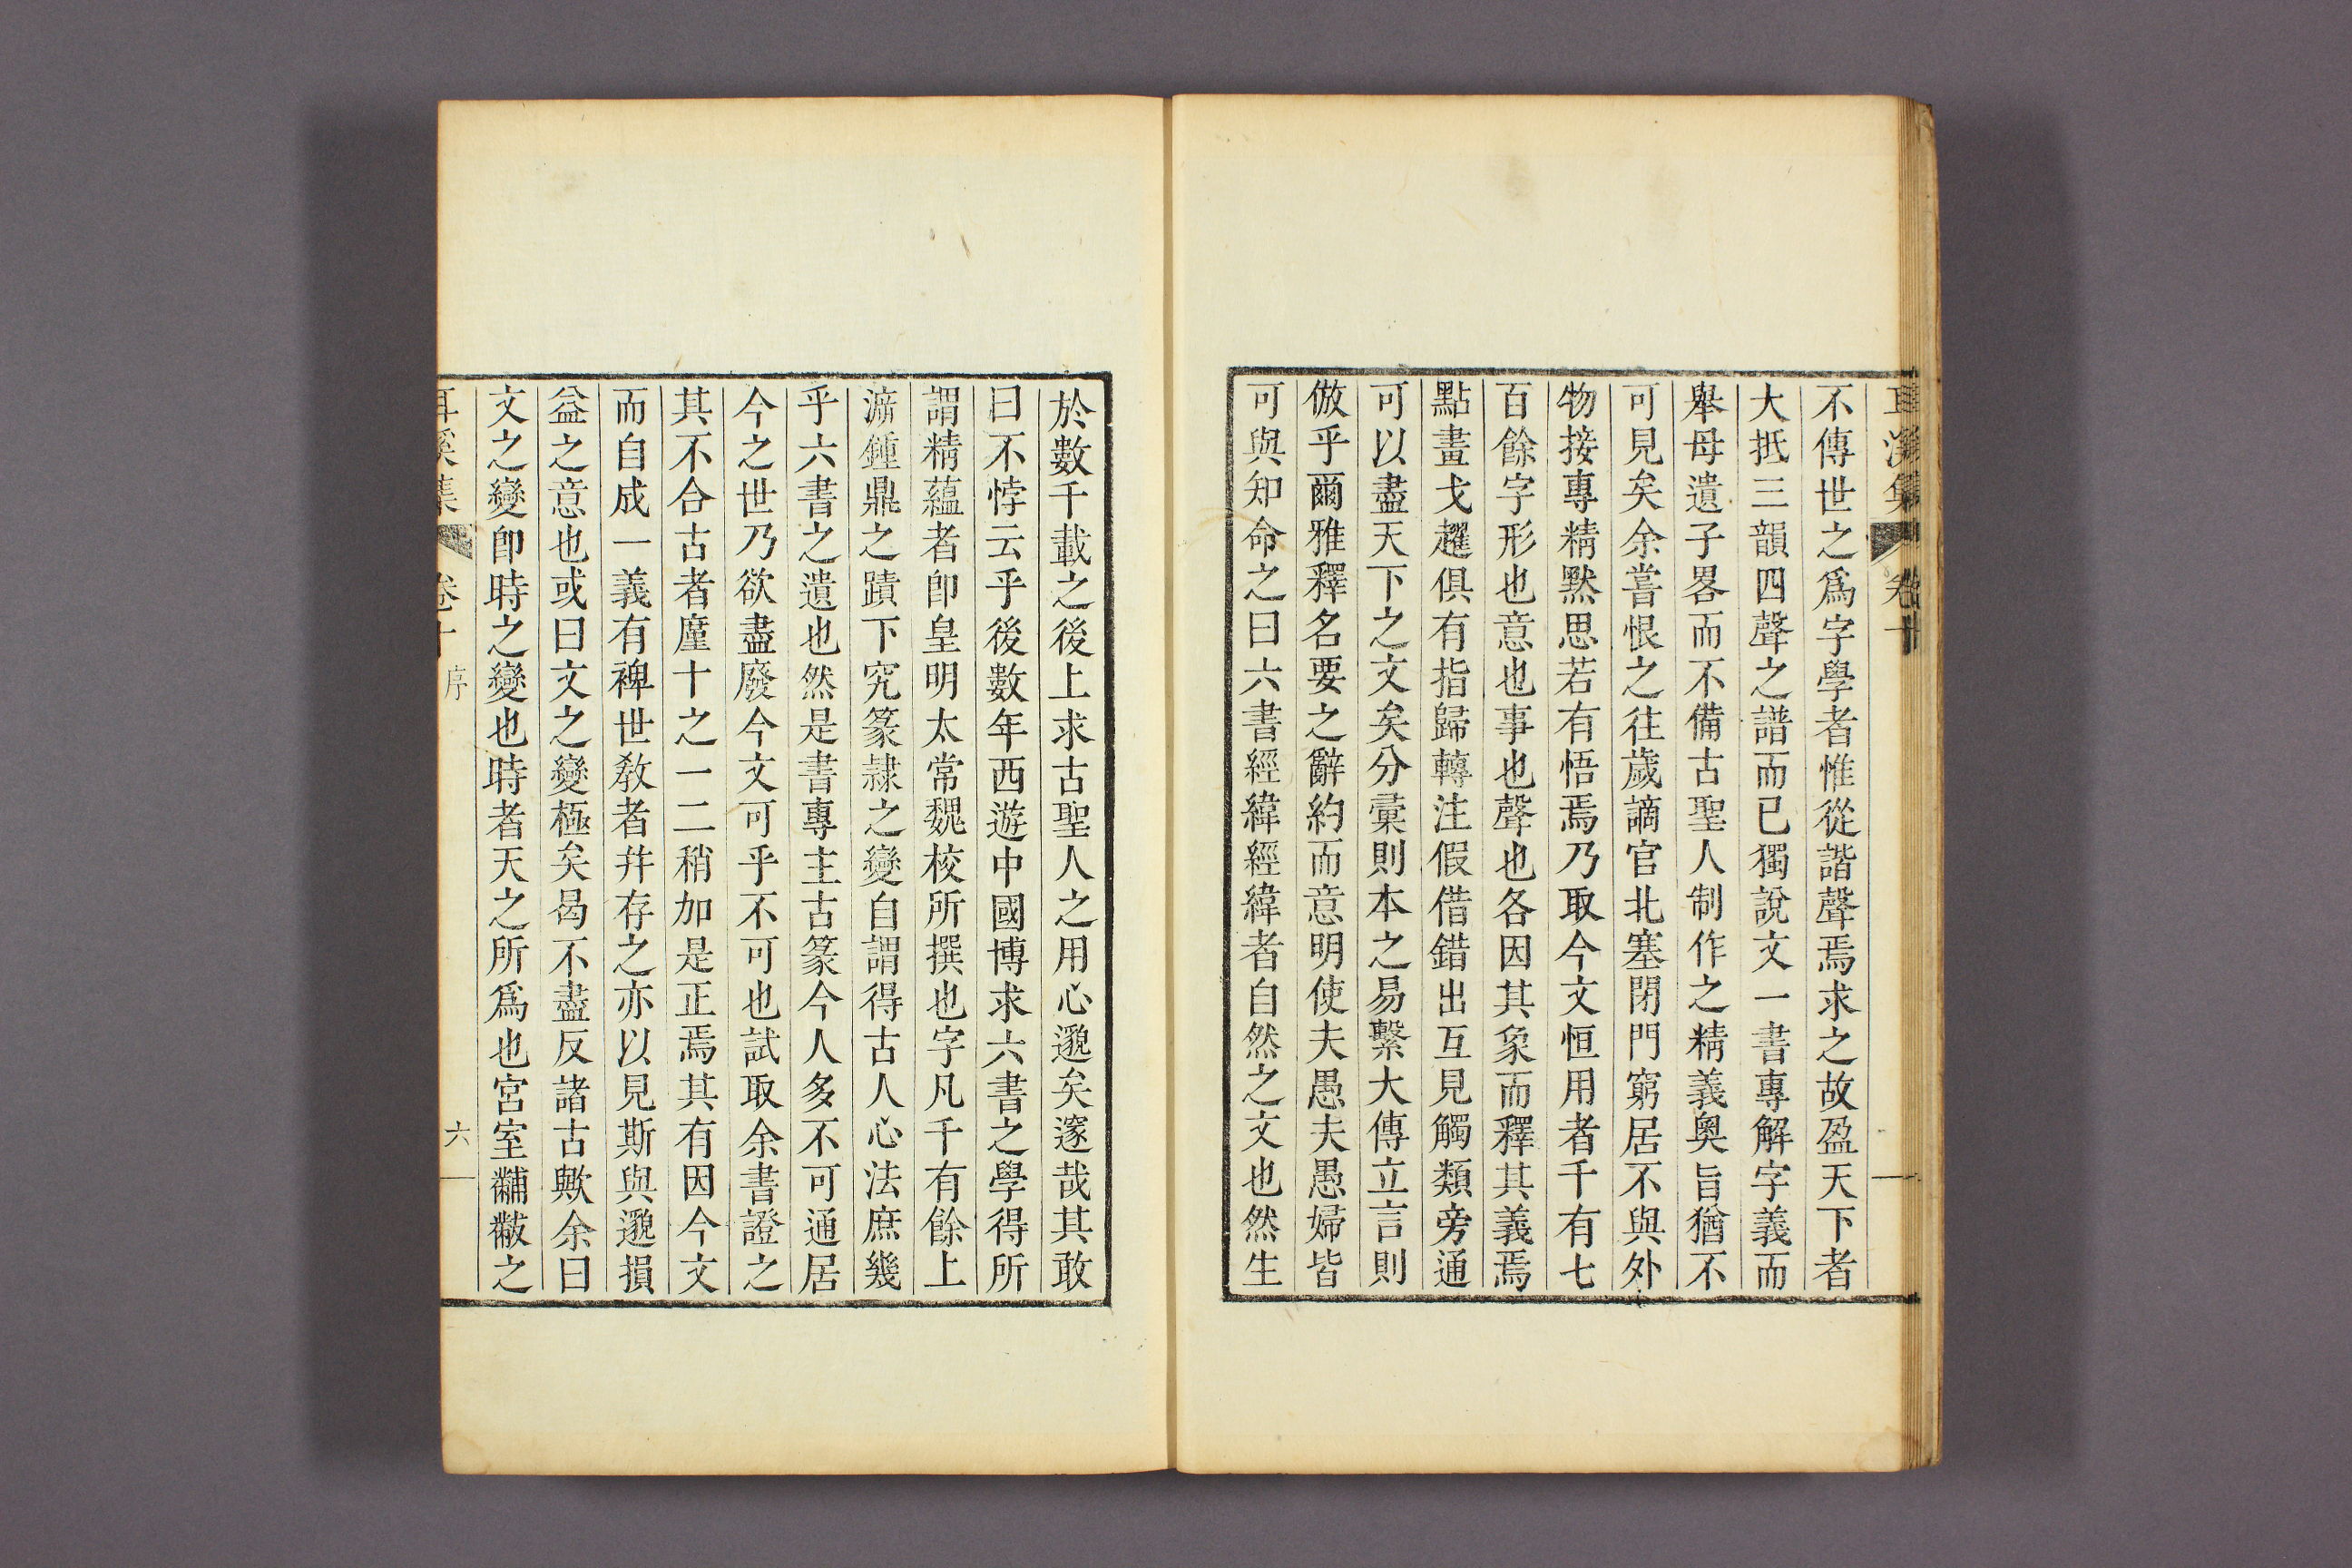 耳溪集 卷十
不傳世之爲字學者惟從諧聲焉求之故盈天下者
大抵三韻四聲之譜而已獨說文一書專解字義而
舉母遺子畧而不備古聖人制作之精義奧旨猶不
可見矣余嘗恨之往歲謫官北塞閉門窮居不與外
物接專精默思若有悟焉乃取今文恒用者千有七
百餘字形也意也事也聲也各因其象而釋其義焉
點畫戈趯俱有指歸轉注假借錯出互見觸類旁通
可以盡天下之文矣分彙則本之易繫大傳立言則
倣乎爾雅釋名要之辭約而意明使夫愚夫愚婦皆
可與知命之曰六書經緯經緯者自然之文也然生
於數千載之後上求古聖人之用心邈矣邃哉其敢
曰不悖云乎後數年西遊中國博求六書之學得所
謂精蘊者卽皇明太常魏校所撰也字凡千有餘上
泝鍾鼎之蹟下究篆隷之變自謂得古人心法庶幾
乎六書之遺也然是書專主古篆今人多不可通居
今之世乃欲盡廢今文可乎不可也試取余書證之
其不合古者廑十之一二稍加是正焉其有因今文
而自成一義有裨世敎者幷存之亦以見斯與邈損
益之意也或曰文之變極矣曷不盡反諸古歟余曰
文之變卽時之變也時者天之所爲也宮室黼黻之
耳溪集 卷十 序 六